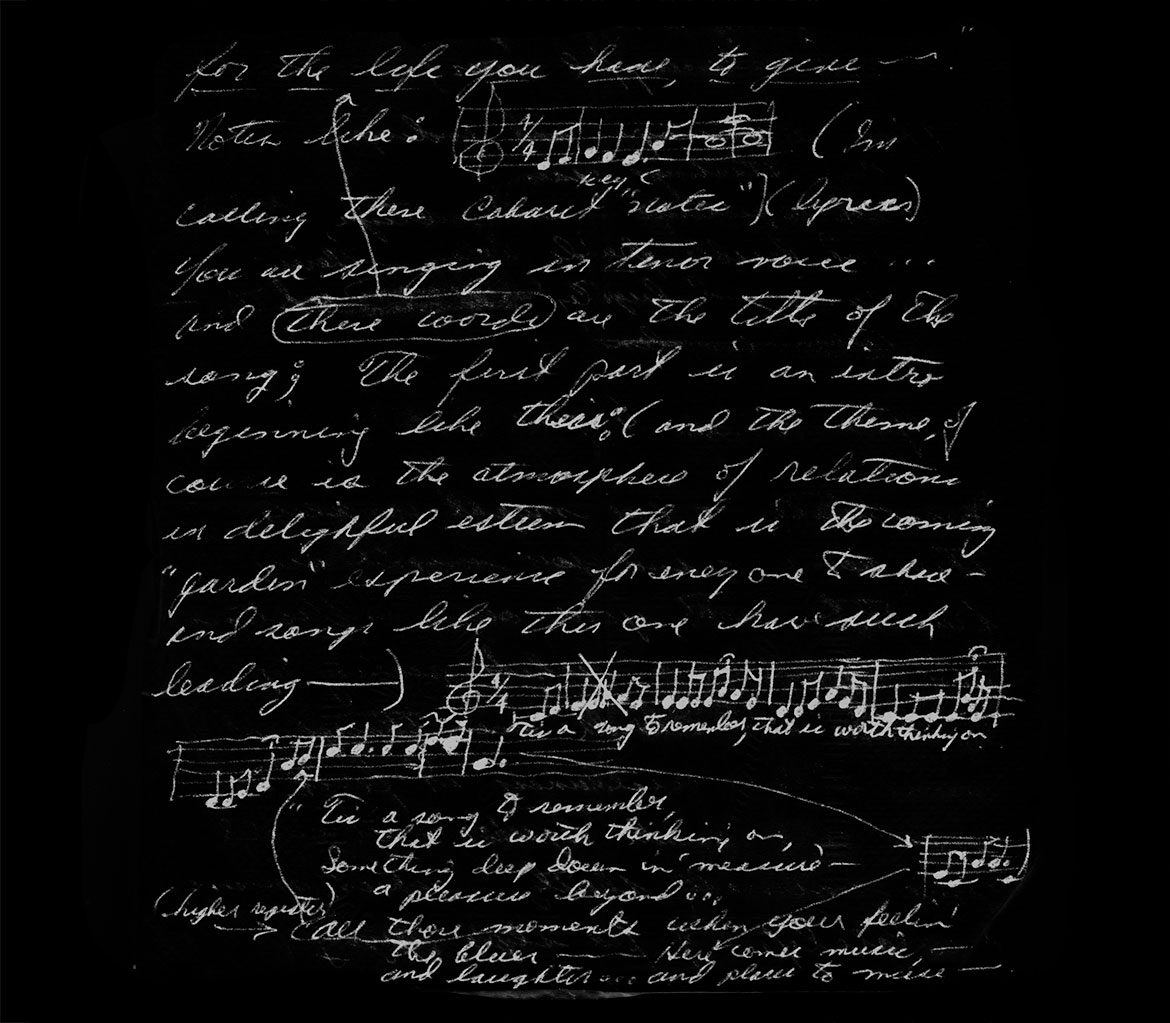 for the life you have, to give — "
Notes like: 4/4 (I'm
key C
calling these Cabaret "notes")(lyrics)
You are singing in tenor voice ...
and these words are the title of the
song; The first part is an intro
beginning like this: (and the theme, of
course is the atmosphere of relations
in delightful esteem that is the coming
"garden" experience for everyone to share —
and songs like this one have such
leading —) 4/4
'Tis a song to remember, that is worth thinking on
" 'Tis a song to remember,
that is worth thinking on,
Something deep down in measure —
a pleasure beyond ...
(higher register)
All those moments when your feelin'
the blues — Here comes music, —
and laughter ... and places to muse —